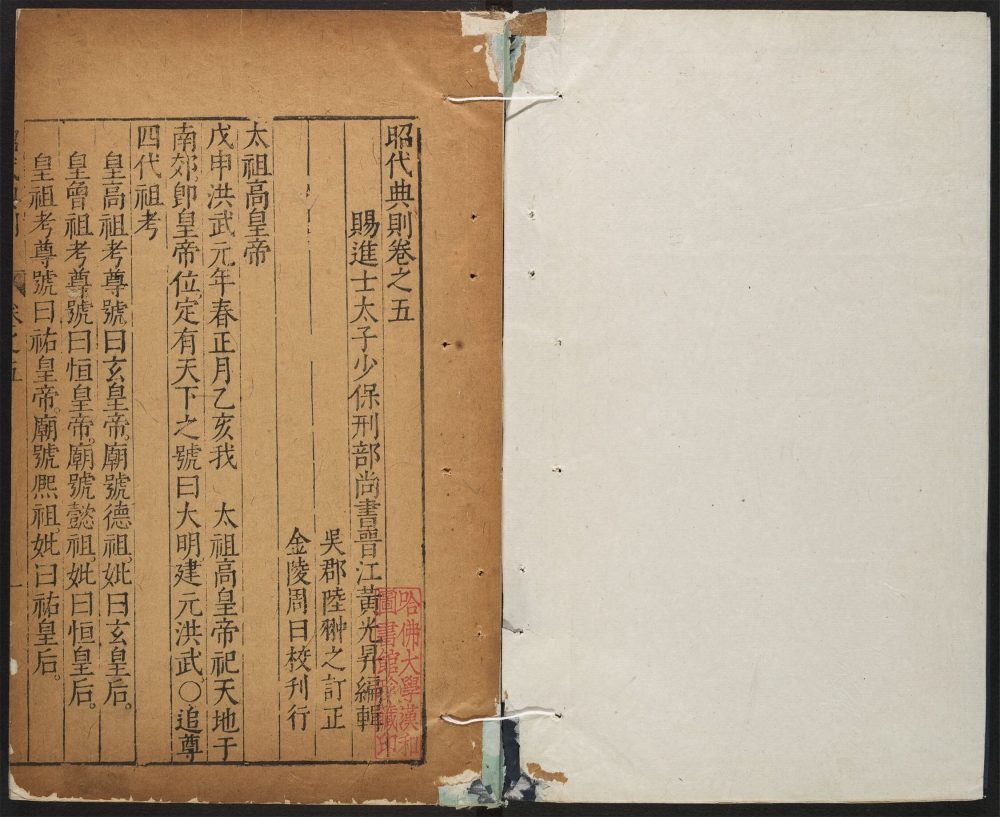 昭代典則卷之五
賜進士太子少保刑部尚書晉江黃光昇編輯
吳郡陸翀之訂正
金陵周日校刊行
太祖高皇帝
戊申洪武元年春正月乙亥我　太祖高皇帝祀天地于
南郊。卽皇帝位。定有天下之號曰大明。建元洪武。○追尊
四代祖考
皇高祖考尊號曰玄皇帝。廟號德祖。妣曰玄皇后。
皇曾祖考尊號曰恒皇帝。廟號懿祖。妣曰恒皇后。
皇祖考尊號曰祐皇帝。廟號熈祖。妣曰祐皇后。
卷之五
一
哈佛大學漢和
圖書館珍藏印